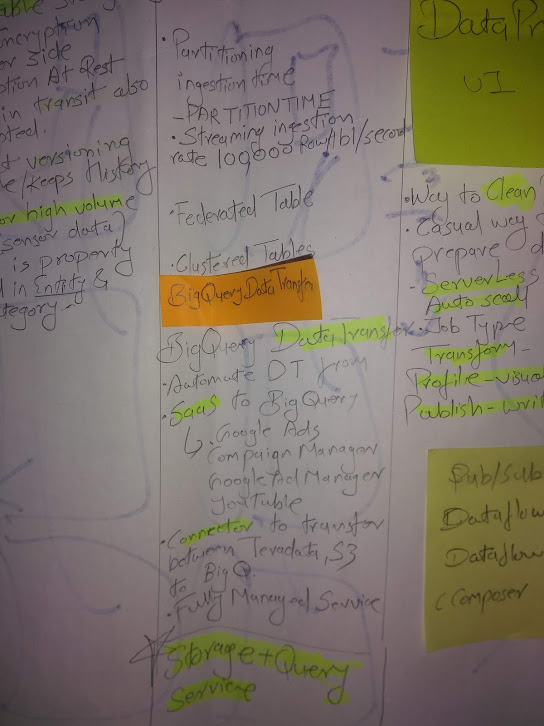 Encryption
er side
ption At Rest
in transit also
pted.
st versioning
e/keeps History
or high volume
sensor data)
is property
d in Entity &
ategory.
• Partitioning
ingestion time
- PARTITIONTIME
• Streaming ingestion
rate 100000 Row/tbl/second
• Federated Table
• Clustered Tables
BigQuery Data Transfer
BigQuery Data transfer
• Automate DT from
• SaaS to BigQuery
↳ • Google Ads
Campaign Manager
Google Ad Manager
YouTuble
• Connector to transfer
between Teradata, S3
to BigQ.
• Fully Managed Service
Storage + Query
Service
DataPr
UI
• Way to Clean
• Casual way
prepare d
- Serverless
Auto scall
• Job Type
Transform -
Profile - visual
Publish - writ
Pub/Sub
Dataflow
Dataflow
(Composer